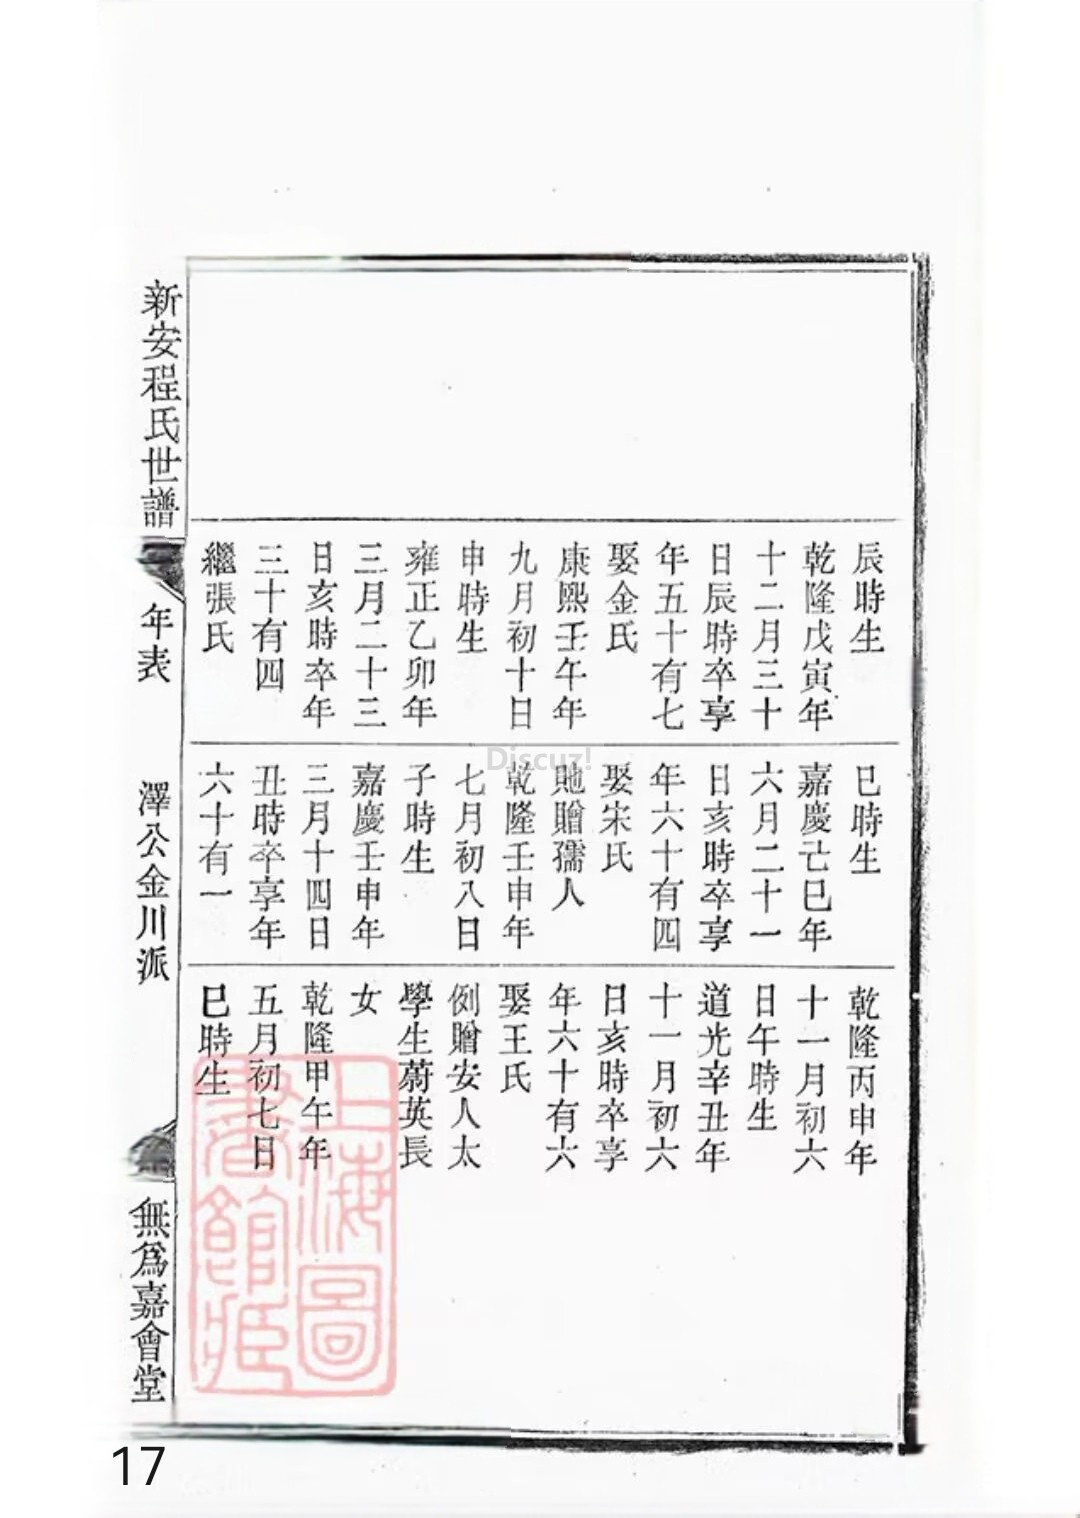 辰時生
乾隆戊寅年
十二月三十
日辰時卒享
年五十有七
娶金氏
康熙壬午年
九月初十日
申時生
雍正乙卯年
三月二十三
日亥時卒年
三十有四
繼張氏
巳時生
嘉慶己巳年
六月二十一
日亥時卒享
年六十有四
娶宋氏
貤贈孺人
乾隆壬申年
七月初八日
子時生
嘉慶壬申年
三月十四日
丑時卒享年
六十有一
乾隆丙申年
十一月初六
日午時生
道光辛丑年
十一月初六
日亥時卒享
年六十有六
娶王氏
例贈安人太
學生蔚英長
女
乾隆甲午年
五月初七日
巳時生
新安程氏世譜
年表
澤公金川派
無爲嘉會堂
上海圖
書館藏
Discuz!
17